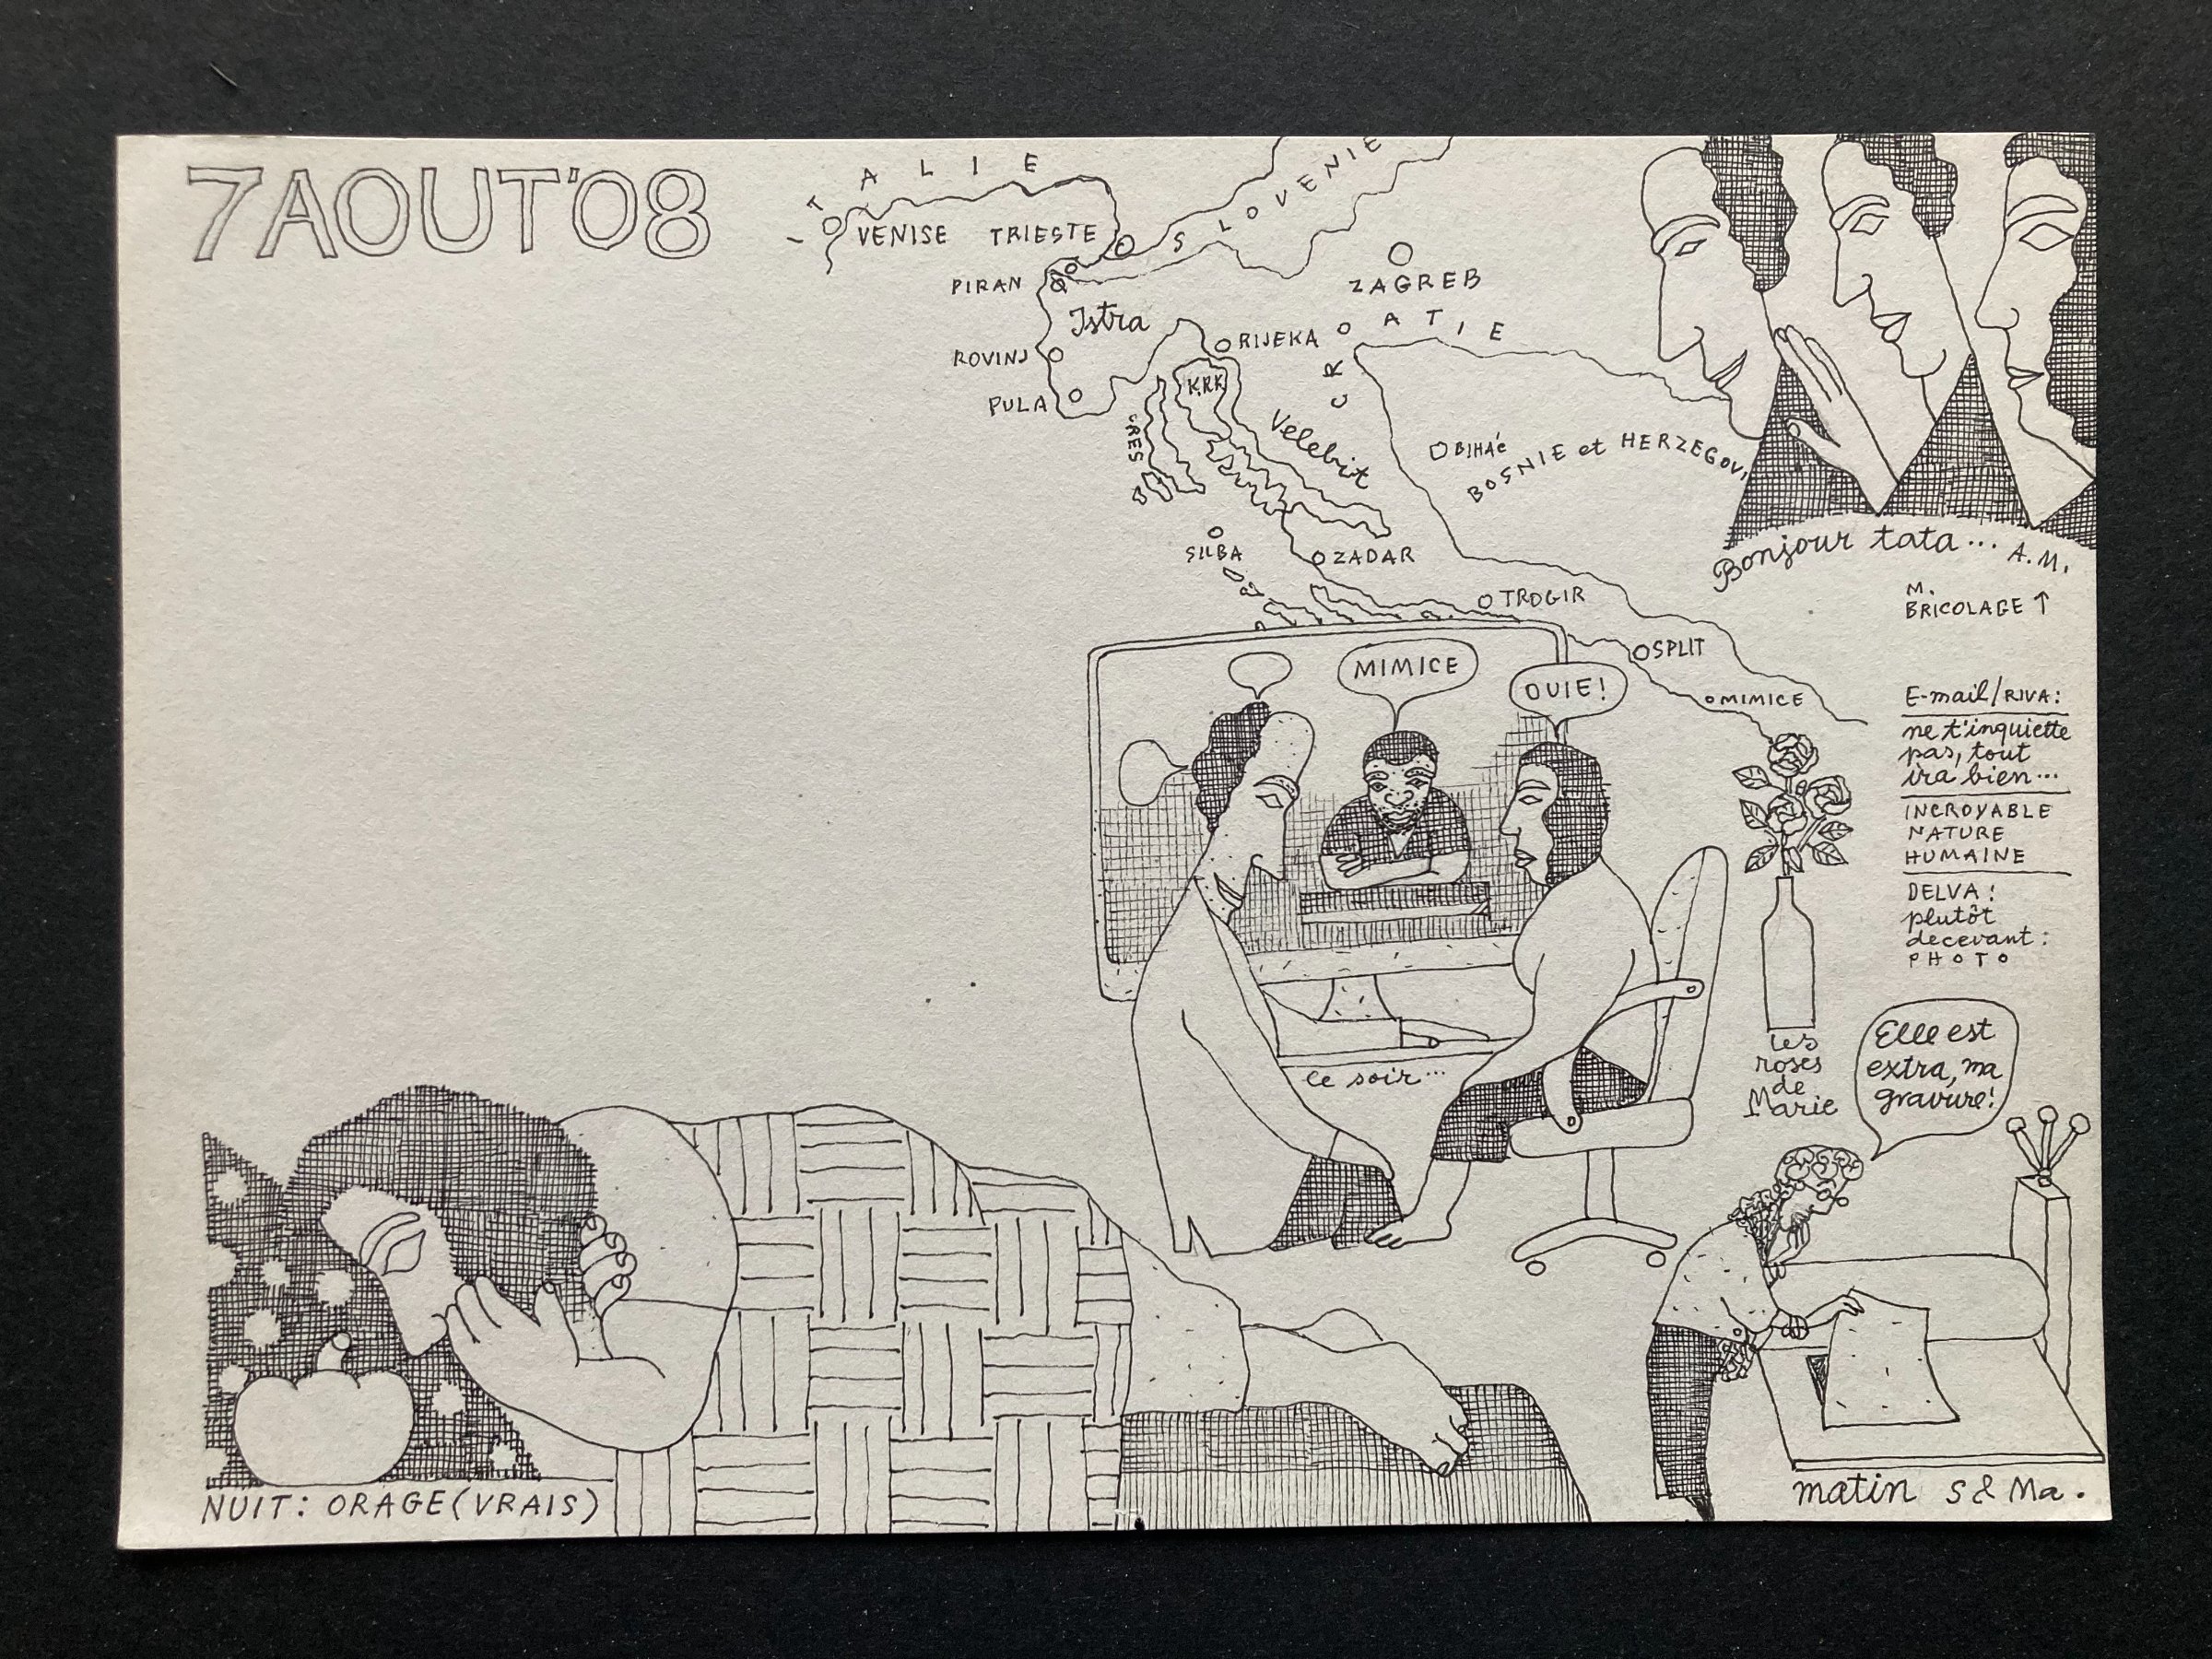 7AOUT'08
ITALIE
SLOVENIE
VENISE TRIESTE
PIRAN
ZAGREB
Istra
CROATIE
ROVINJ
RIJEKA
KRK
PULA
CRES
Velebit
BIHAĆ
BOSNIE et HERZEGOVI
SILBA
ZADAR
TROGIR
SPLIT
MIMICE
Bonjour tata... A.M.
M.
BRICOLAGE ↑
MIMICE
OUIE!
ce soir...
E-mail/RIVA:
ne t'inquiette
pas, tout
ira bien...
INCROYABLE
NATURE
HUMAINE
DELVA!
plutôt
decevant:
PHOTO
les
roses
de
Marie
Elle est
extra, ma
gravure!
NUIT: ORAGE (VRAIS)
matin S & Ma.